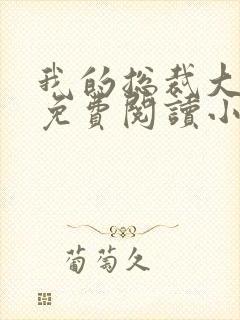 我的总裁大
免費閱讀小
葡萄久